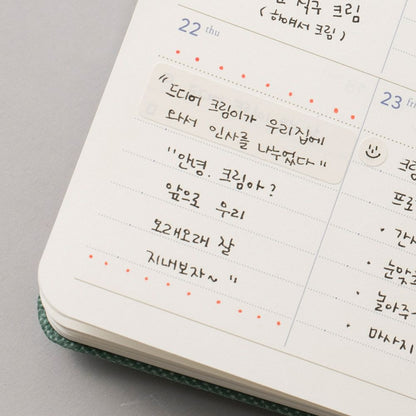 식구 크림
(하얘서 크림)
22 thu
"드디어 크림이가 우리집에
와서 인사를 나누었다"
"안녕 크림아?
앞으로 우리
오래오래 잘
지내보자~"
23 fri
크림
프로
• 간식
• 눈맞
• 놀아주기
• 마사지